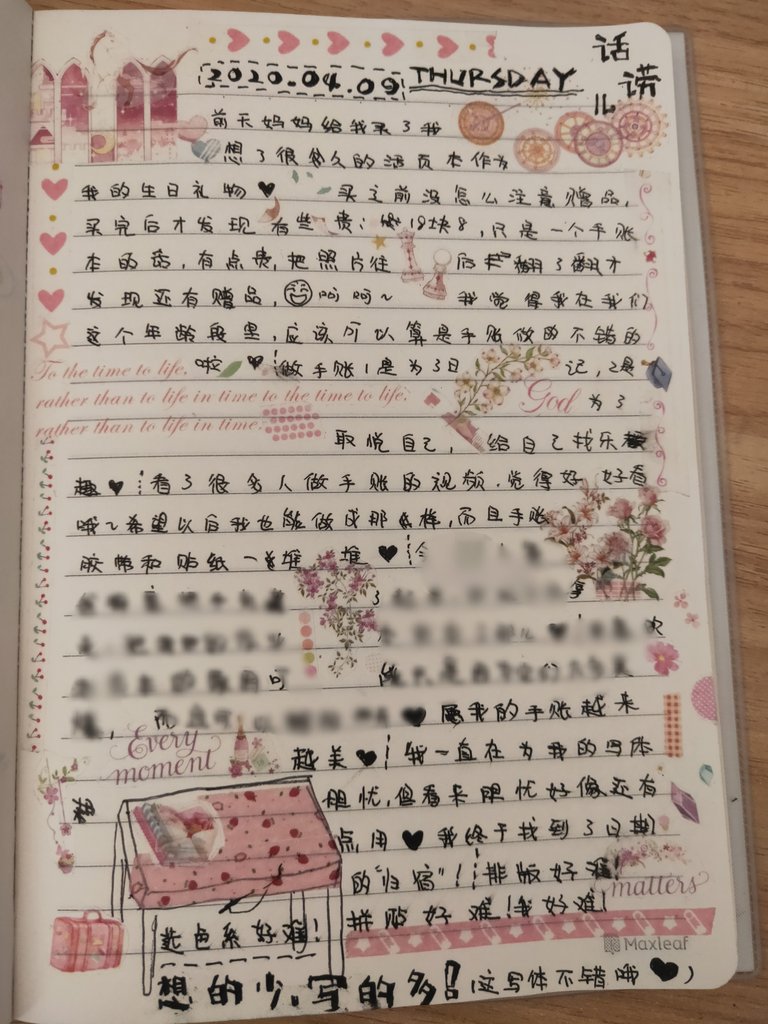 话
痨
儿
2020.04.09 THURSDAY
前天妈妈给我买了我
想了很多久的活页本作为
我的生日礼物♥ 买之前没怎么注意赠品,
买完后才发现有些贵: 19块8,只是一个手账
本的话,有点贵,把照片往 后 翻了翻才
发现还有赠品, 呵呵~ 我觉得我在我们
这个年龄段里,应该可以算是手账做的不错的
啦 ♥ 做手账1是为了日 记,2是
To the time to life,
rather than to life in time to the time to life.
God 为了
rather than to life in time.
取悦自己,给自己找乐
趣♥ 看了很多人做手账的视频.觉得好 好看
哦~希望以后我也能做成那么样,而且手账
胶带和贴纸一 堆 堆♥
拿
次
可
, 而 ♥ 愿我的手账越来
Every
moment
越美♥ 我一直在为我的写体
担忧,但看来担忧好像还有
点用♥我终于找到了日期
的“归宿”! 排版好难!
matters
拼贴好难!我好难!
选色系好难!
Maxleaf
想的少,写的多!(这写体不错哦♥)